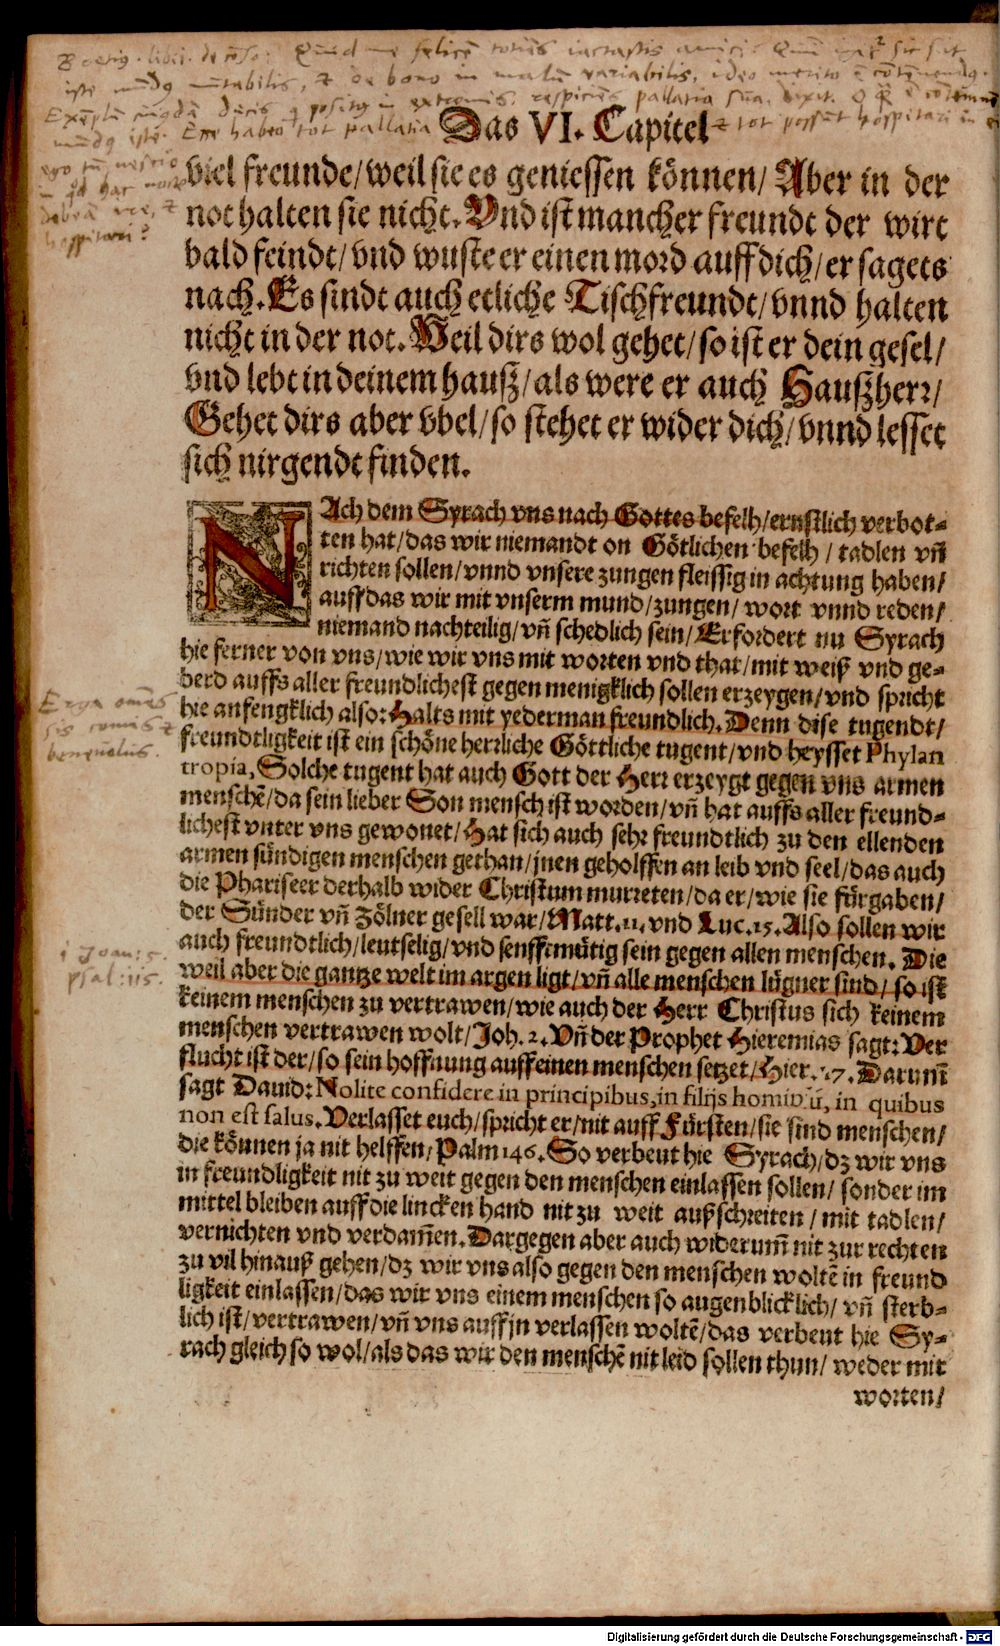 Boetius . libri . de cōso: Quid me felicē totiēs iactastis amici: Quia igr̃ sic sit
iste mūdꝰ mutabilis, & de bono in malū variabilis, ideo merito ē cōtēnendꝰ.
Exēplū cuiꝰdā ducis q̇ positꝰ in extremis, respiciēs pallatia sua, dixit. O
mūdꝰ iste. Ecce habeo tot pallatia & tot possūt hospitari in
ego tñ nescio
in hac nocte
debeā ire, &
hospitari?
Das VI. Capitel
viel freunde/weil sie es geniessen können/ Aber in der
not halten sie nicht. Vnd ist mancher freundt der wirt
bald feindt/vnd wuste er einen mord auff dich/er sagets
nach. Es sindt auch etliche Tischfreundt/vnnd halten
nicht in der not. Weil dirs wol gehet/so ist er dein gesel/
vnd lebt in deinem hauß/als were er auch Haußherr/
Gehet dirs aber vbel/so stehet er wider dich/vnnd lesset
sich nirgendt finden.
NAch dem Syrach vns nach Gottes befelh/ernstlich verbot-
ten hat/das wir niemandt on Götlichen befelh / tadlen vñ
richten sollen/vnnd vnsere zungen fleissig in achtung haben/
auff das wir mit vnserm mund/zungen/ wort vnnd reden/
niemand nachteilig/vñ schedlich sein/Erfordert nu Syrach
hie ferner von vns/wie wir vns mit worten vnd that/mit weiß vnd ge-
berd auffs aller freundlichest gegen menigklich sollen erzeygen/vnd spricht
hie anfengklich also: Halts mit yederman freundlich. Denn dise tugendt/
freundtligkeit ist ein schöne herrliche Göttliche tugent/vnd heysset Phylan
tropia, Solche tugent hat auch Gott der Herr erzeygt gegen vns armen
menschē/da sein lieber Son mensch ist worden/vñ hat auffs aller freund-
lichest vnter vns gewonet/Hat sich auch sehr freundtlich zu den ellenden
armen sündigen menschen gethan/jnen geholffen an leib vnd seel/das auch
die Phariseer derhalb wider Christum murreten/da er/wie sie fürgaben/
der Sünder vñ Zölner gesell war/Matt.11.vnd Luc.15. Also sollen wir
auch freundtlich/leutselig/vnd senfftmütig sein gegen allen menschen. Die
weil aber die gantze welt im argen ligt/vñ alle menschen lügner sind/ so ist
keinem menschen zu vertrawen/wie auch der Herr Christus sich keinem
menschen vertrawen wolt/Joh.2. Vñ der Prophet Hieremias sagt: Ver
flucht ist der/so sein hoffnung auff einen menschen setzet/Hier.17. Darum̃
sagt Dauid: Nolite confidere in principibus, in filijs hominū, in quibus
non est salus. Verlasset euch/spricht er/nit auff Fürsten/sie sind menschen/
die können ja nit helffen/Psalm 146. So verbeut hie Syrach/dz wir vns
in freundligkeit nit zu weit gegen den menschen einlassen sollen/ sonder im
mittel bleiben auff die lincken hand nit zu weit außschreiten / mit tadlen/
vernichten vnd verdam̃en. Dargegen aber auch widerum̃ nit zur rechten
zu vil hinauß gehen/dz wir vns also gegen den menschen woltē in freund
ligkeit einlassen/das wir vns einem menschen so augenblicklich/ vñ sterb-
lich ist/vertrawen/vñ vns auff jn verlassen woltē/das verbeut hie Sy-
rach gleich so wol/als das wir den menschē nit leid sollen thun/ weder mit
worten/
Erga omēs
sis comis &
beneuolus.
1 Joan: 5.
psal: 115.
Digitalisierung gefördert durch die Deutsche Forschungsgemeinschaft - DFG